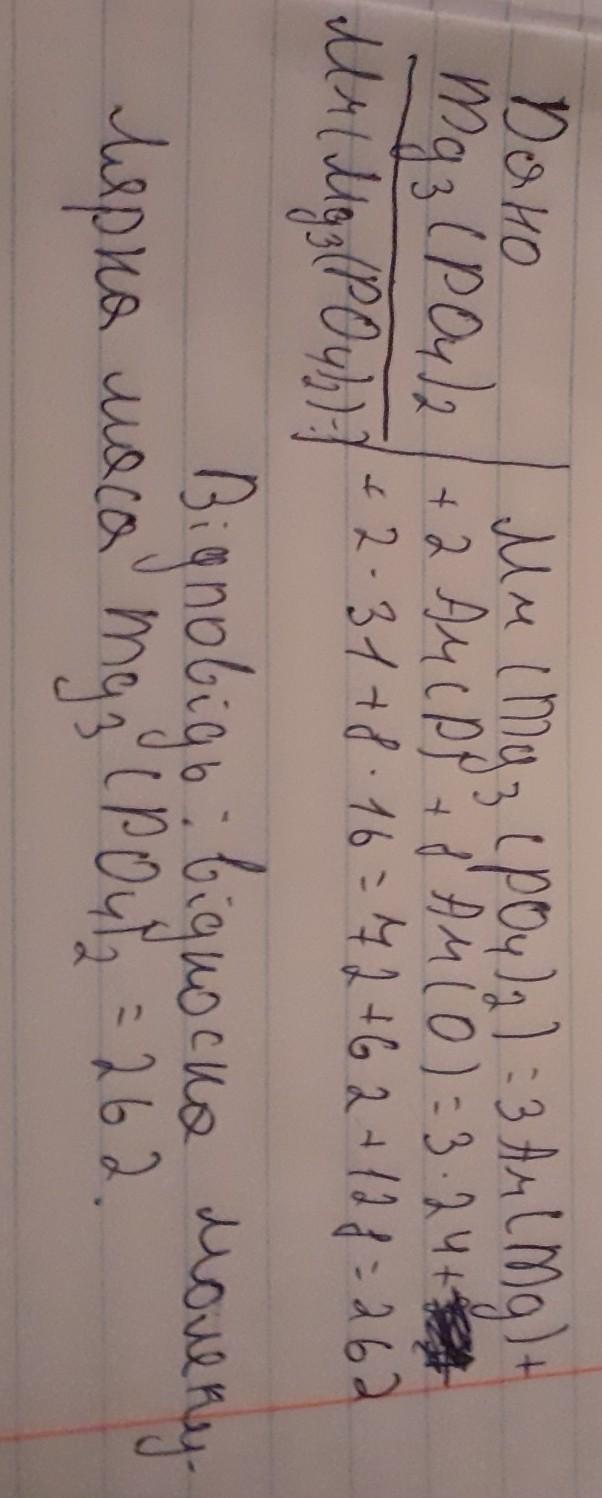 Дано
Mg3(PO4)2
Mr(Mg3(PO4)2)-?
Mr(Mg3(PO4)2) = 3Ar(Mg)+
+2Ar(P)+8Ar(O)=3·24+
+2·31+8·16=72+62+128=262
Відповідь: відносна молеку-
лярна маса Mg3(PO4)2 = 262.